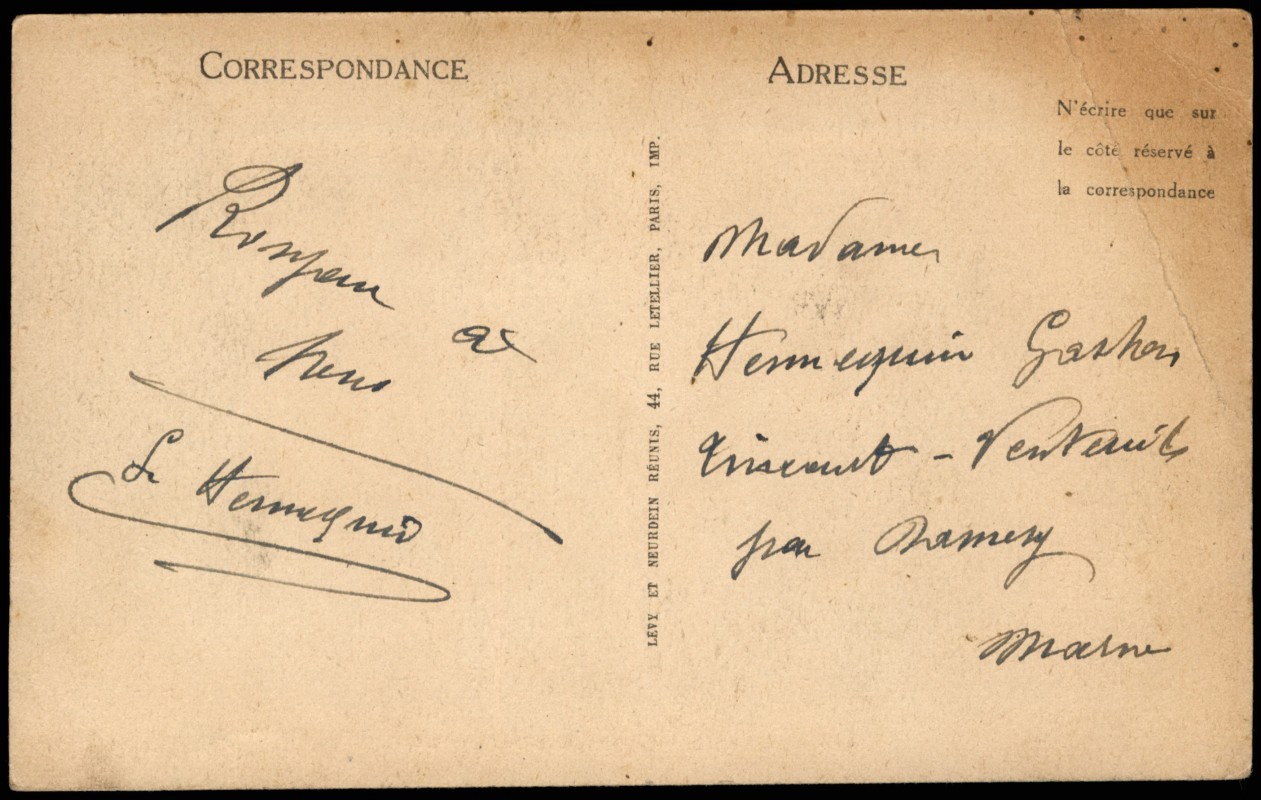 CORRESPONDANCE
à
L. Hennequin
LÉVY ET NEURDEIN RÉUNIS, 44, RUE LETELLIER, PARIS, IMP.
ADRESSE
N'écrire que sur
le côté réservé à
la correspondance
Madame
Hennequin Gaston
Tincourt - Venteuil
par Damery
Marne